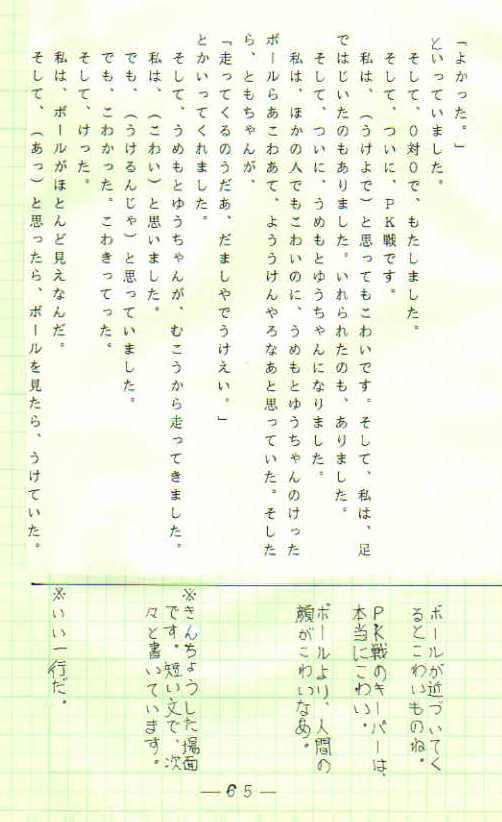 「よかった。」
といっていました。
そして、０対０で、もたしました。
そして、ついに、ＰＫ戦です。
私は、（うけよで）と思ってもこわいです。そして、私は、足
ではじいたのもありました。いれられたのも、ありました。
そして、ついに、うめもとゆうちゃんになりました。
私は、ほかの人でもこわいのに、うめもとゆうちゃんのけった
ボールらあこわあて、よううけんやろなあと思っていた。そした
ら、ともちゃんが、
「走ってくるのうだあ、だましやでうけえい。」
とかいってくれました。
そして、うめもとゆうちゃんが、むこうから走ってきました。
私は、（こわい）と思いました。
でも、（うけるんじゃ）と思っていました。
でも、こわかった。こわきってった。
そして、けった。
私は、ボールがほとんど見えなんだ。
そして、（あっ）と思ったら、ボールを見たら、うけていた。
ボールが近づいてく
るとこわいものね。
ＰＫ戦のキーパーは、
本当にこわい。
ボールより、人間の
顔がこわいなあ。
※きんちょうした場面
です。短い文で、次
々と書いています。
※いい一行だ。
—65—